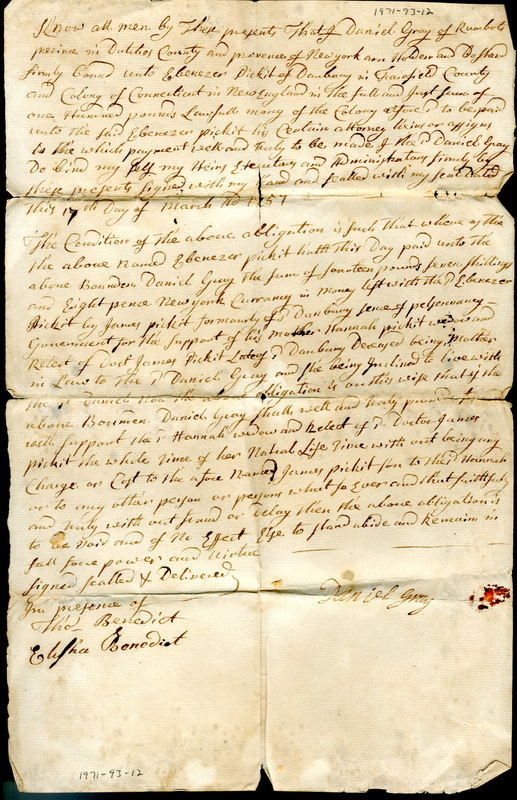 1971-93-12
Know all men by These presents That I Daniel Gray of Rumbouts
precince in Dutchss County and provence of New york am Holden and Do stand
firmly bound unto Ebenezer Pickit of Danbury in Fairfield County
and Colony of Connecticut in New England in the full and Just sum of
one Hundred pounds Lawfull mony of the Colony afore sd to be paid
unto the said Ebenezer pickit his Certain attorney heirs or assigns
to the which payment well and truly to be made I the sd Daniel Gray
Do bind my self my Heirs Executors and Administrators firmly by
these presents signed with my Hand and sealled with my seal Dated
this 17th Day of March AD 1757
The Condition of the above obligation is such that where as the
the above Named Ebenezer Pickit hath this Day paid unto the
above Bounden Daniel Gray the sum of fourteen pounds seven shillings
and Eight pence New york Currancy in Money left with the sd Ebenezer
Pickit by James pickit formarly of sd Danbury
Government for the support of his Mother Hannah pickit widow and
Relect of Doct James Pickit Late of sd Danbury Deceased being Mother
in Law to the sd Daniel Gray and she being Inclined to live with
the sd Daniel Now the above obligation is on this wise that if the
above Bounden Daniel Gray shall well and truly provide
well support the sd Hannah widow and Relect of sd Doctor James
pickit the whole time of her Natral Life Time with out being any
Charge or Cost to the afore Named James pickit son to the sd Hannah
or to any other person or persons what so Ever and that faithfully
and truly with out fraud or Delay then the above obligation is
to be Void and of No Effect Else to stand abide and Remain in
full force power and Virtue
Signed sealled & Delivered
In presence of
Tho Benedict
Daniel Gray
Elisha Benedict
1971-93-12